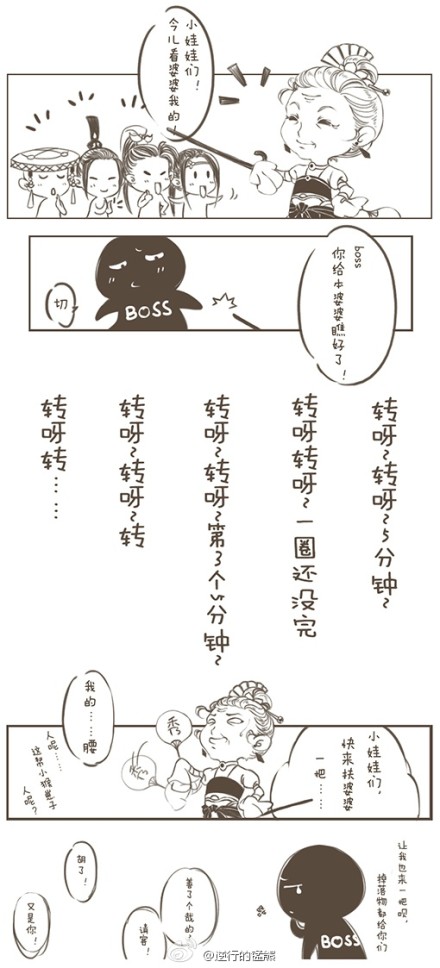 小娃娃们！
今儿看婆婆我的
boss
你给本婆婆瞧好了！
切
BOSS
转呀~转呀~5分钟~
转呀转呀~一圈还没完
转呀~转呀~第3个5分钟~
转呀~转呀~转
转呀转……
小娃娃们，
快来扶婆婆
一把……
我的……腰
秀
人呢……
这帮小猴崽子
人呢？
让我也来一把呗，
掉落物都给你们
BOSS
善了个哉的！
请客！
胡了！
又是你！
@逆行的猛熊